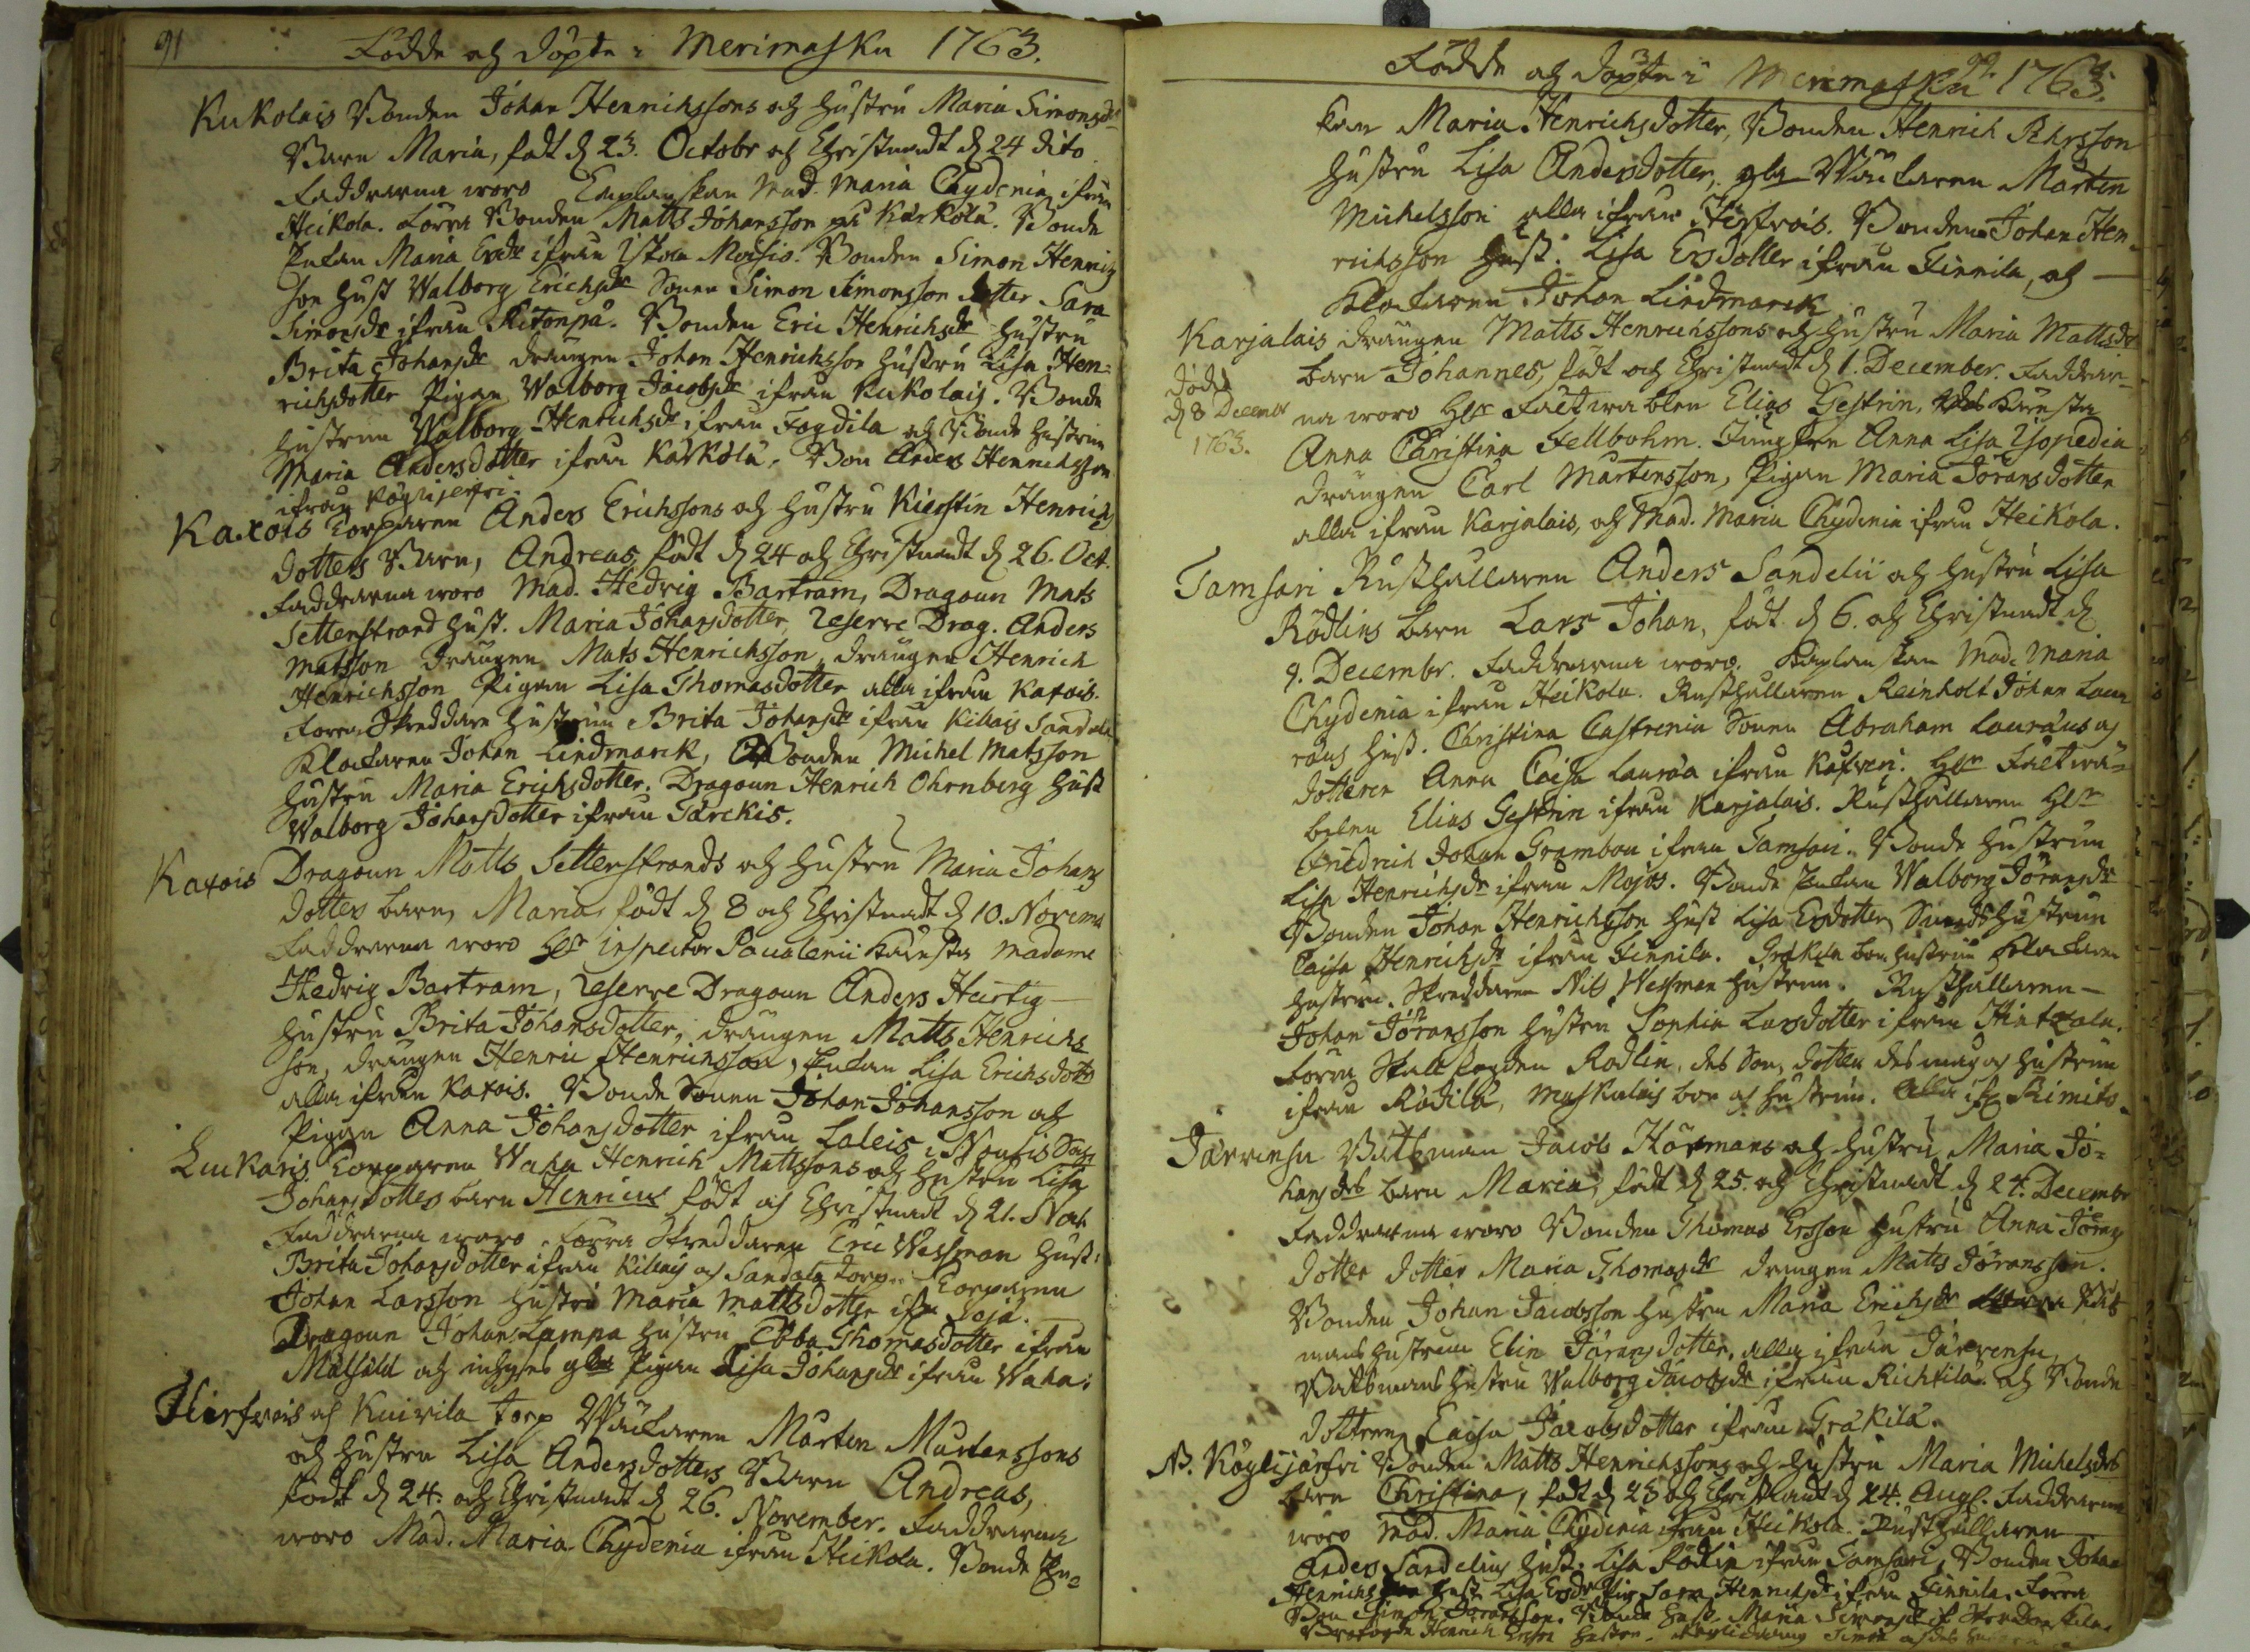 91
Födde och döpte i Merimasku 1763.
Kukolais Bonden Johan Henrichssons och hustru Maria Simonsdr
Barn Maria, född d. 23. Octobr och Christnadt d. 24 dito
Faddrarna woro Caplanskan Mad. Maria Chydenia ifrån
Heikola. Förra Bonden Matts Johansson på Kårkola. Bonde
Enkan Maria Ersdr ifrån Moisio. Bonden Simon Henrics
son hust Walborg Erichsdr Sonen Simon Simonsson dotter Sara
Simonsdr ifrån Ritonpä. Bonden Eric Henrichsdr hustru
Brita Johansdr drängen Johan Henrichsson hustru Lisa Hen-
richsdotter Pigan Walborg Jacobsdr ifrån Kukolais. Bonde
hustrun Walborg Henrichsdr ifrån Fogdila och Bonde hustrun
Maria Andersdotter ifrån Kårkola. Bon Anders Henrichsson
ifrån Köylijerfvi.
Kaxois Torparen Anders Erichssons och hustru Kierstin Henrichs
dotters Barn, Andreas, född d. 24 och Christnadt d. 26. Oct.
Faddrarna woro Mad. Hedvig Bartram, Dragoun Mats
Setterstrand hust. Maria Johansdotter, Reserve Drag. Anders
Matsson drängen Mats Henrichsson, drängen Henrich
Henrichsson Pigan Lisa Thomasdotter alla ifrån Kaxois.
Förra Skreddare hustrun Brita Johansdr ifrån Killais Sandala
Klockaren Johan Lindmarck, Bonden Michel Matsson
hustru Maria Erichsdotter. Dragoun Henrich Ohrnberg hust
Walborg Johansdotter ifrån Tarckis.
Kaxois Dragoun Matts Setterstrands och hustru Maria Johans
dotters barn, Maria, född d. 8 och Christnadt d. 10. Novembr
Faddrarna woro Hr Inspector Madame
Hedvig Bartram, Reserve Dragoun Anders Hurtig
hustru Brita Johansdotter, drängen Matts Henrichs
son, drängen Henric Henricsson, Enkan Lisa Erichsdotter
alla ifrån Kaxois. Bonde Sonen Johan Johansson och
Pigan Anna Johansdotter ifrån Laleis i Nousis Sokn
Luckaris Torparen Waha Henrich Mattssons och hustru Lisa
Johansdotters barn Henricus född och Christnadt d. 21. Nov.
Faddrarna woro. Förra Skreddaren Eric Wessman hust:
Brita Johansdotter ifrån Killais och Sandala Torp. Torparen
Johan Larsson hustru Maria Mattsdotter ifr. Soja.
Dragoun Johan Lampa hustru Ebba Thomasdotter ifrån
och Pigan Lisa Johansdr ifrån Waha.
Hirfvois och Kuivila torp Märten Mårtenssons
och hustru Lisa Andersdotters Barn Andreas,
född d. 24. och Christnadt d. 26. November. Faddrarna
woro Mad. Maria Chydenia ifrån Heikola. Bonde En-
92.
Födde och döpte i Merimasku 1763.
kan Maria Henrichsdotter, Bonden Henrich Pehrsson
hustru Lisa Andersdotter, Mårten
Michelsson alla ifrån Hirfvois. Bonden Johan Hen-
richsson hust. Lisa Ersdotter ifrån Finnila, och
Klockaren Johan Lindmarck
Karjalais drängen Matts Henrichssons och hustru Maria Mattsdr
barn Johannes, född och Christnadt d. 1. December. Faddrar-
Död d. 8 December 1763.
na woro Hr Fältwäbeln Elias Gestrin,
Anna Christina Fellbohm. Jungfrun Anna Lisa
drängen Carl Mårtensson, Pigan Maria Jöransdotter
alla ifrån Karjalais, och Mad. Maria Chydenia ifrån Heikola.
Tamsari Rusthållaren Anders Sandelii och hustru Lisa
Rödlins barn Lars Johan, född d. 6. och Christnadt d.
9. Decembr. Faddrarna woro. Kaplanskan Mad. Maria
Chydenia ifrån Heikola. Rusthållaren Reinholt Johan Lau-
raus hust. Christina Castrenia Sonen Abraham Lauraus och
dotteren Anna Caisa Lauraa ifrån Kafveri. Hr Fältwä-
beln Elias Gestrin ifrån Karjalais. Rusthållaren Hr
Friedrich Johan Grambau ifrån Tamsari. Bonde hustrun
Lisa Henrichsdr ifrån Mojos. Bonde Enkan Walborg Jöransdr
Bonden Johan Henrichsson hust Lisa Ersdotter, hustrun
Caisa Henrichsdr ifrån Finnila. Gräkila bon hustrun Klockaren
hustrun. Skreddaren Nils Wessman hustrun. Rusthållaren
Johan Jöransson hustru Sophia Larsdotter ifrån
Förra Rodlin, des Son, dotter des måg och hustrun
ifrån Rödilä, Muskulais bon och hustrun. Alla ifr. Rimito.
Järvensu Båtsman Jacob Hörmans och hustru Maria Jo-
hansdrs barn Maria, född d. 25. och Christnadt d. 27. Decembr
Faddrarna woro Bonden Thomas Ersson hustru Anna Jörans
dotter dotter Maria Thomasdr drängen Matts Jöransson.
Bonden Johan Jacobsson hustru Maria Erichsdr Båts
mans hustrun Elin Jöransdotter, alla ifrån Järvensu,
Båtsmans hustru Walborg Jacobsdr ifrån Richtilä. och Bonde
dottren Caisa Jacobsdotter ifrån Gräkilä.
N. Köylijärfvi Bonden Matts Henrichssons och hustru Maria Michelsdrs
barn Christina, född d. 23 och Christnadt d. 24. Aug. Faddrarna
woro Mad. Maria Chydenia ifrån Heikola. Rusthållaren
Anders Sandelius hust. Lisa Rödlin ifrån Tamsari, Bonden Johan
Henrichsson hust. Lisa Ersdr Pig. Sara Henrichsdr ifrån Finnila. Förra
Bon Simon Jöransson. Bonde hust. Maria Simonsdr
Henrich Ersson hustru. Simon